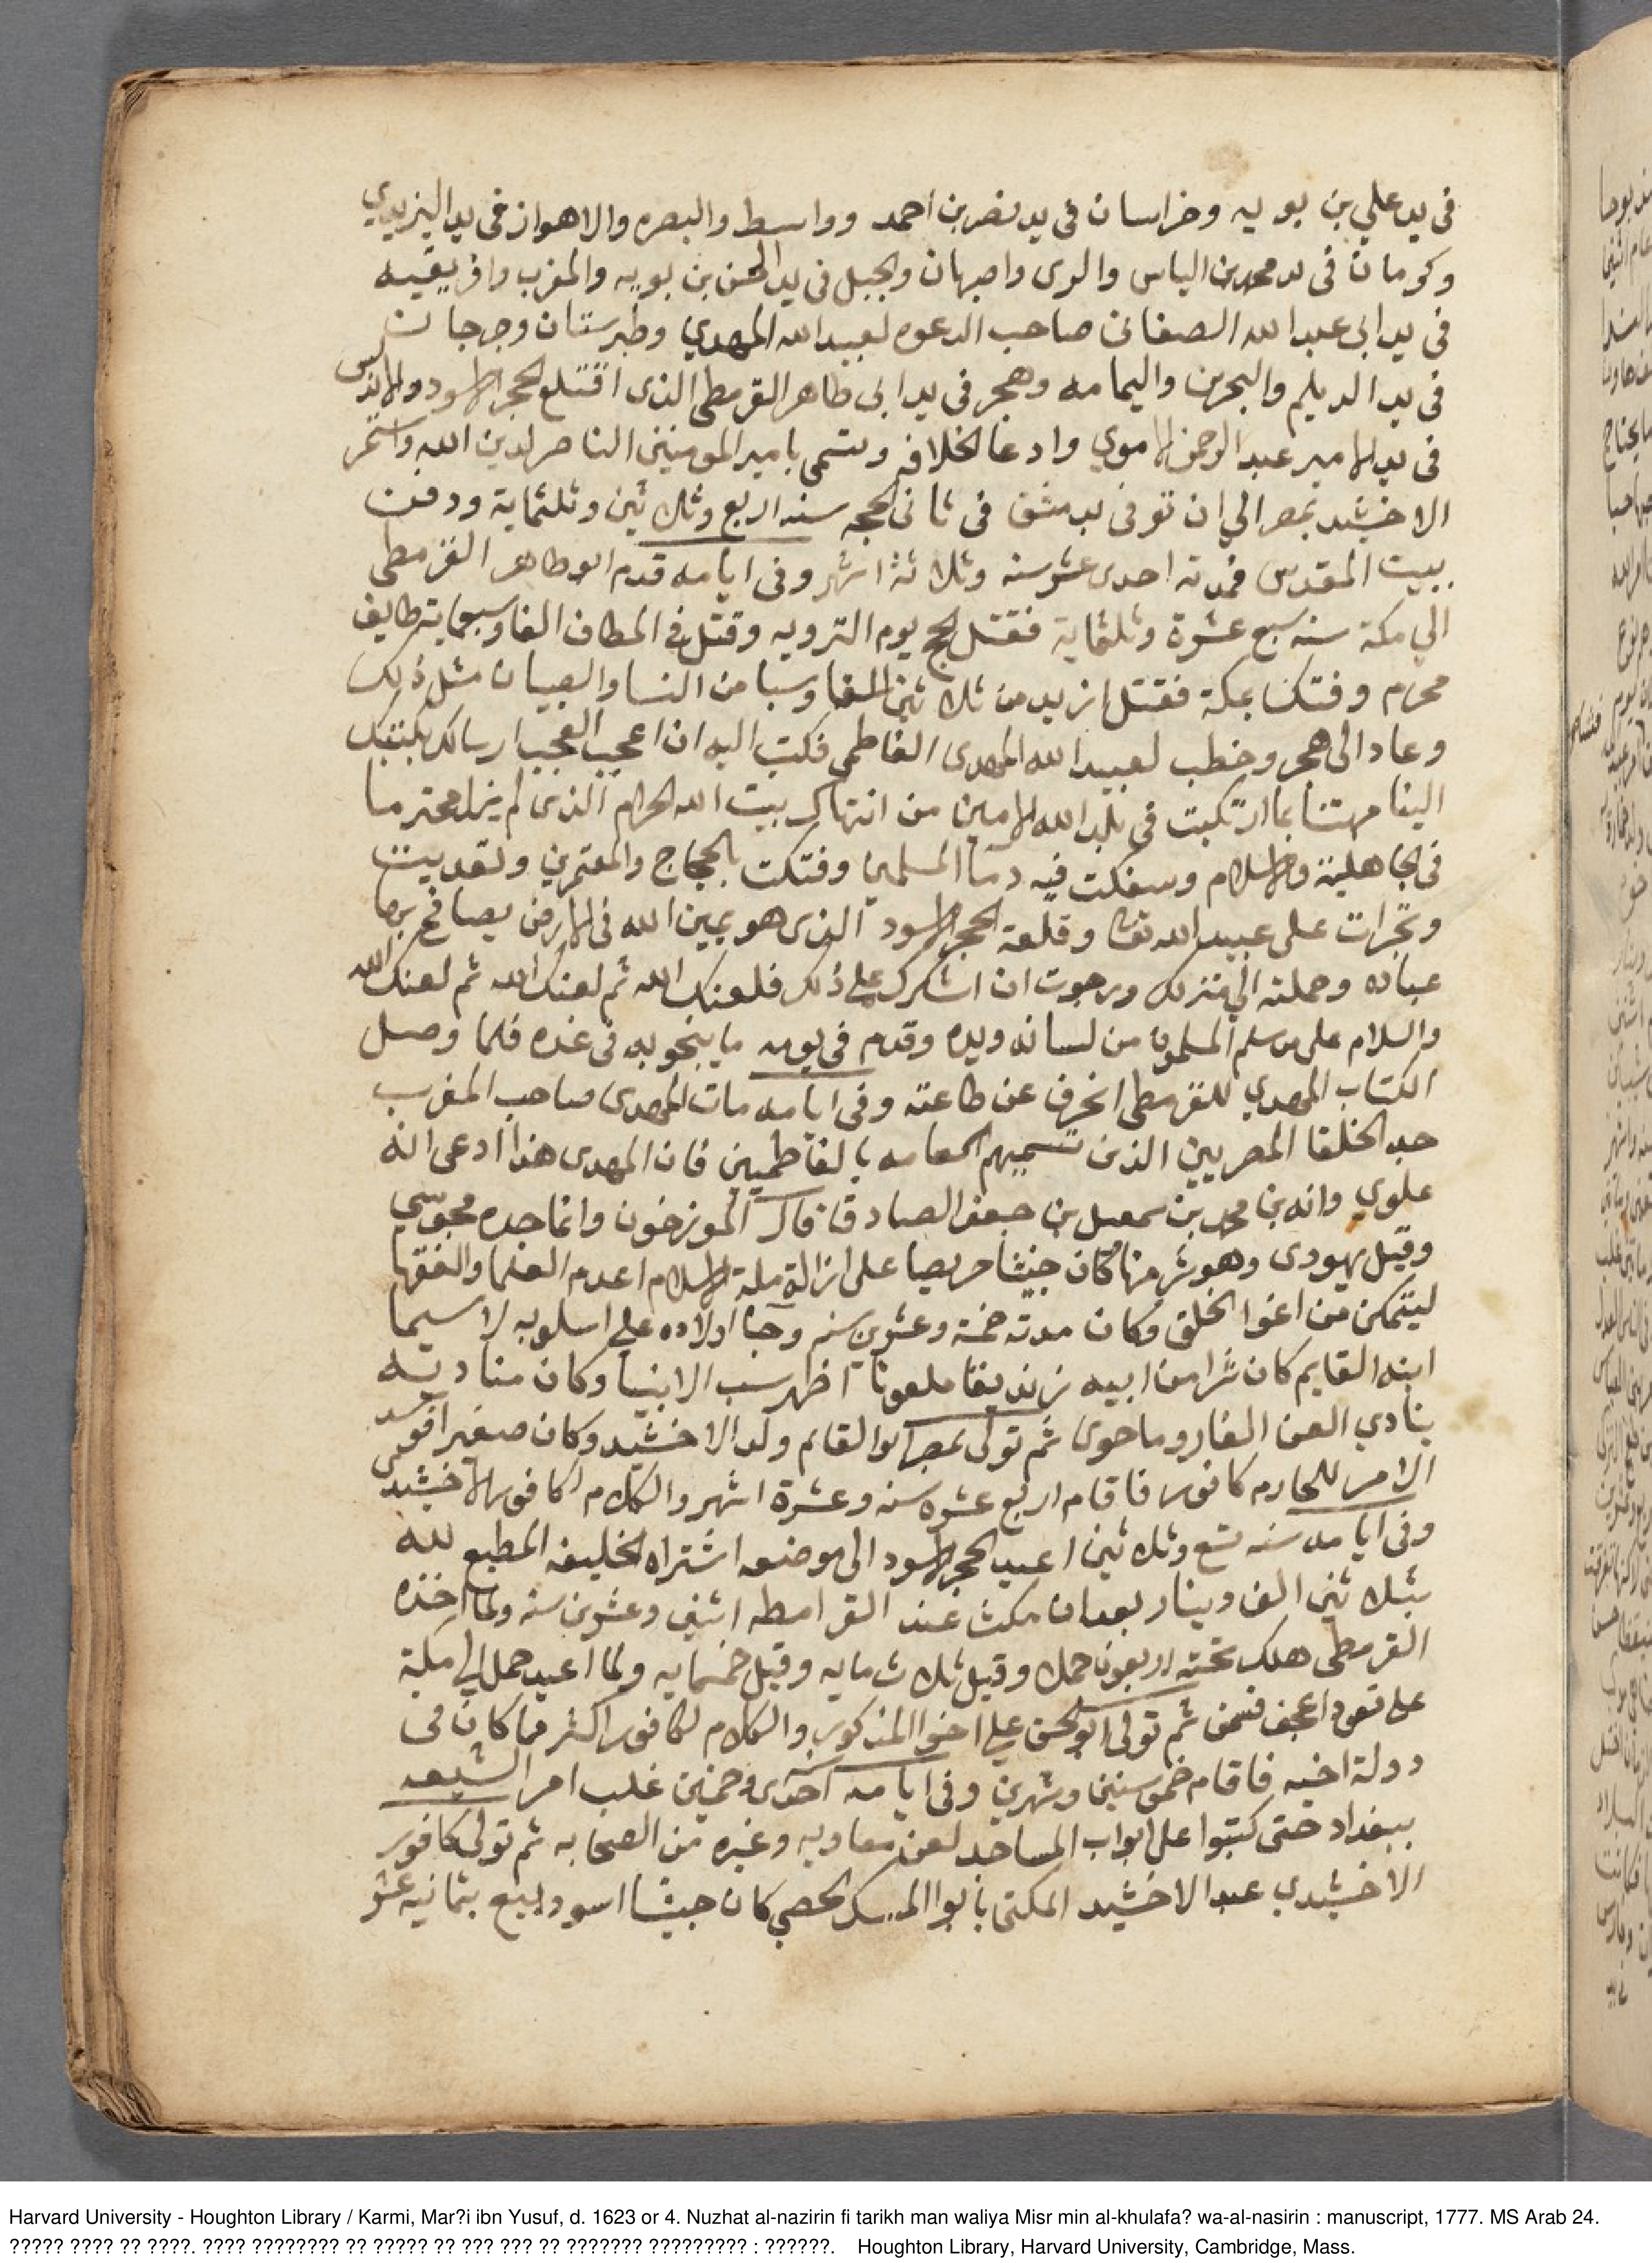 في يد علي بن بويه وخراسان في يد نصر بن احمد وواسط والبصره والاهواز في يد اليزيدي
وكرمان في يد محمد بن الياس والرى واصبهان والجبل في يد الحسن بن بويه والمغرب وافريقيه
في يد ابى عبد الله الصغانى صاحب الدعوه لعبيد الله المهدي وطبرستان وجرجان
في يد الديلم والبحرين واليمامه وهجر في يد ابى طاهر القرمطى الذى اقتلع الحجر الاسود والاندلس
في يد الامير عبد الرحمن الاموي وادعا الخلافه وتسمى بامير المومنين الناصر لدين الله واستمر
الاخشيد بمصر الي ان توفى بدمشق في ثانى الحجه سنه اربع وثلاثين وثلثماية ودفن
ببيت المقدس فمدته احدى عشر سنه وثلاثة اشهر وفى ايامه قدم ابو طاهر القرمطى
الي مكة سنه سبع عشرة وثلثماية فقتل الحج يوم الترويه وقتل في المطاف الفا وسبعماية طايف
محرم وفتك بمكة فقتل ازيد من ثلاثين الفا وسبا من النسا والصبيان مثل ذلك
وعاد الى هجر وخطب لعبيد الله المهدى الفاطمى فكتب اليه ان اعجب العجب ارسالك بكتبك
الينا مهتنا بما ارتكبت في بلد الله الامين من انتهاك بيت الله الحرام الذى لم يزل محترما
في الجاهلية والاسلام وسفكت فيه دما المسلمين وفتكت بالحجاج والمعتمرين وتعديت
وتجرات على عبيد الله تعالى وقلعة الحجر الاسود الذى هو يمين الله في الارض يصافح بها
عباده وحملته الي منزلك ورجوت ان اشكرك علي ذلك فلعنك الله ثم لعنك الله ثم لعنك الله
والسلام على من سلم المسلمون من لسانه ويده وقدم في يومه ما ينجو به في غده فلما وصل
الكتاب المهدي للقرمطى انحرف عن طاعته وفى ايامه مات المهدى صاحب المغرب
جد الخلفا المصريين الذين تسميهم العامه بالفاطميين فان المهدى هذا ادعى انه
علوي وانه بن محمد بن سمعيل بن جعفر الصادق قال المورخون وانما جده مجوسي
وقيل يهودى وهو شر منها وكان خبيثا حريصا على ازالة ملة الاسلام اعدم العلما والفقها
ليتمكن من اغوا الخلق وكان مدته خمسة وعشرين سنه وجا اولاده علي اسلوبه لا سيما
ابنه القايم كان شرا من ابيه زنديقا ملعونا اظهر سب الانبيا وكان مناديه
ينادي العن الغار وما حوى ثم تولى بمصر ابو القاسم ولد الاخشيد وكان صغيرا فوض
الامر للخادم كافور فاقام اربع عشره سنه وعشرة اشهر والكلام لكافور الاخشيد
وفى ايامه سنه تسع وثلاثين اعيد الحجر الاسود الى موضعه اشتراه الخليفه المطيع لله
بثلاثين الف دينار بعد ان مكث عند القرامطه اثنين وعشرين سنه ولما اخذه
القرمطى هلك تحته اربعون حملا وقيل ثلاث مايه وقيل خمسمايه ولما اعيد حمل الي مكة
على قعود اعجف فسمن ثم تولى ابو الحسن علي اخو المذكور والكلام لكافور اكثر مما كان في
دولة اخيه فاقام خمس سنين وشهرين وفى ايامه احدى وخمسين غلب امر الشيعه
ببغداد حتى كتبوا على ابواب المساجد لعن معاويه وغيره من الصحابه ثم تولى كافور
الاخشيدي عبد الاخشيد المكنى بابو المسك الخصي كان حبشيا اسود ابيع بثمانيه عشر
Harvard University - Houghton Library / Karmi, Mar?i ibn Yusuf, d. 1623 or 4. Nuzhat al-nazirin fi tarikh man waliya Misr min al-khulafa? wa-al-nasirin : manuscript, 1777. MS Arab 24.
????? ???? ?? ????. ???? ???????? ?? ????? ?? ??? ??? ?? ??????? ????????? : ??????. Houghton Library, Harvard University, Cambridge, Mass.